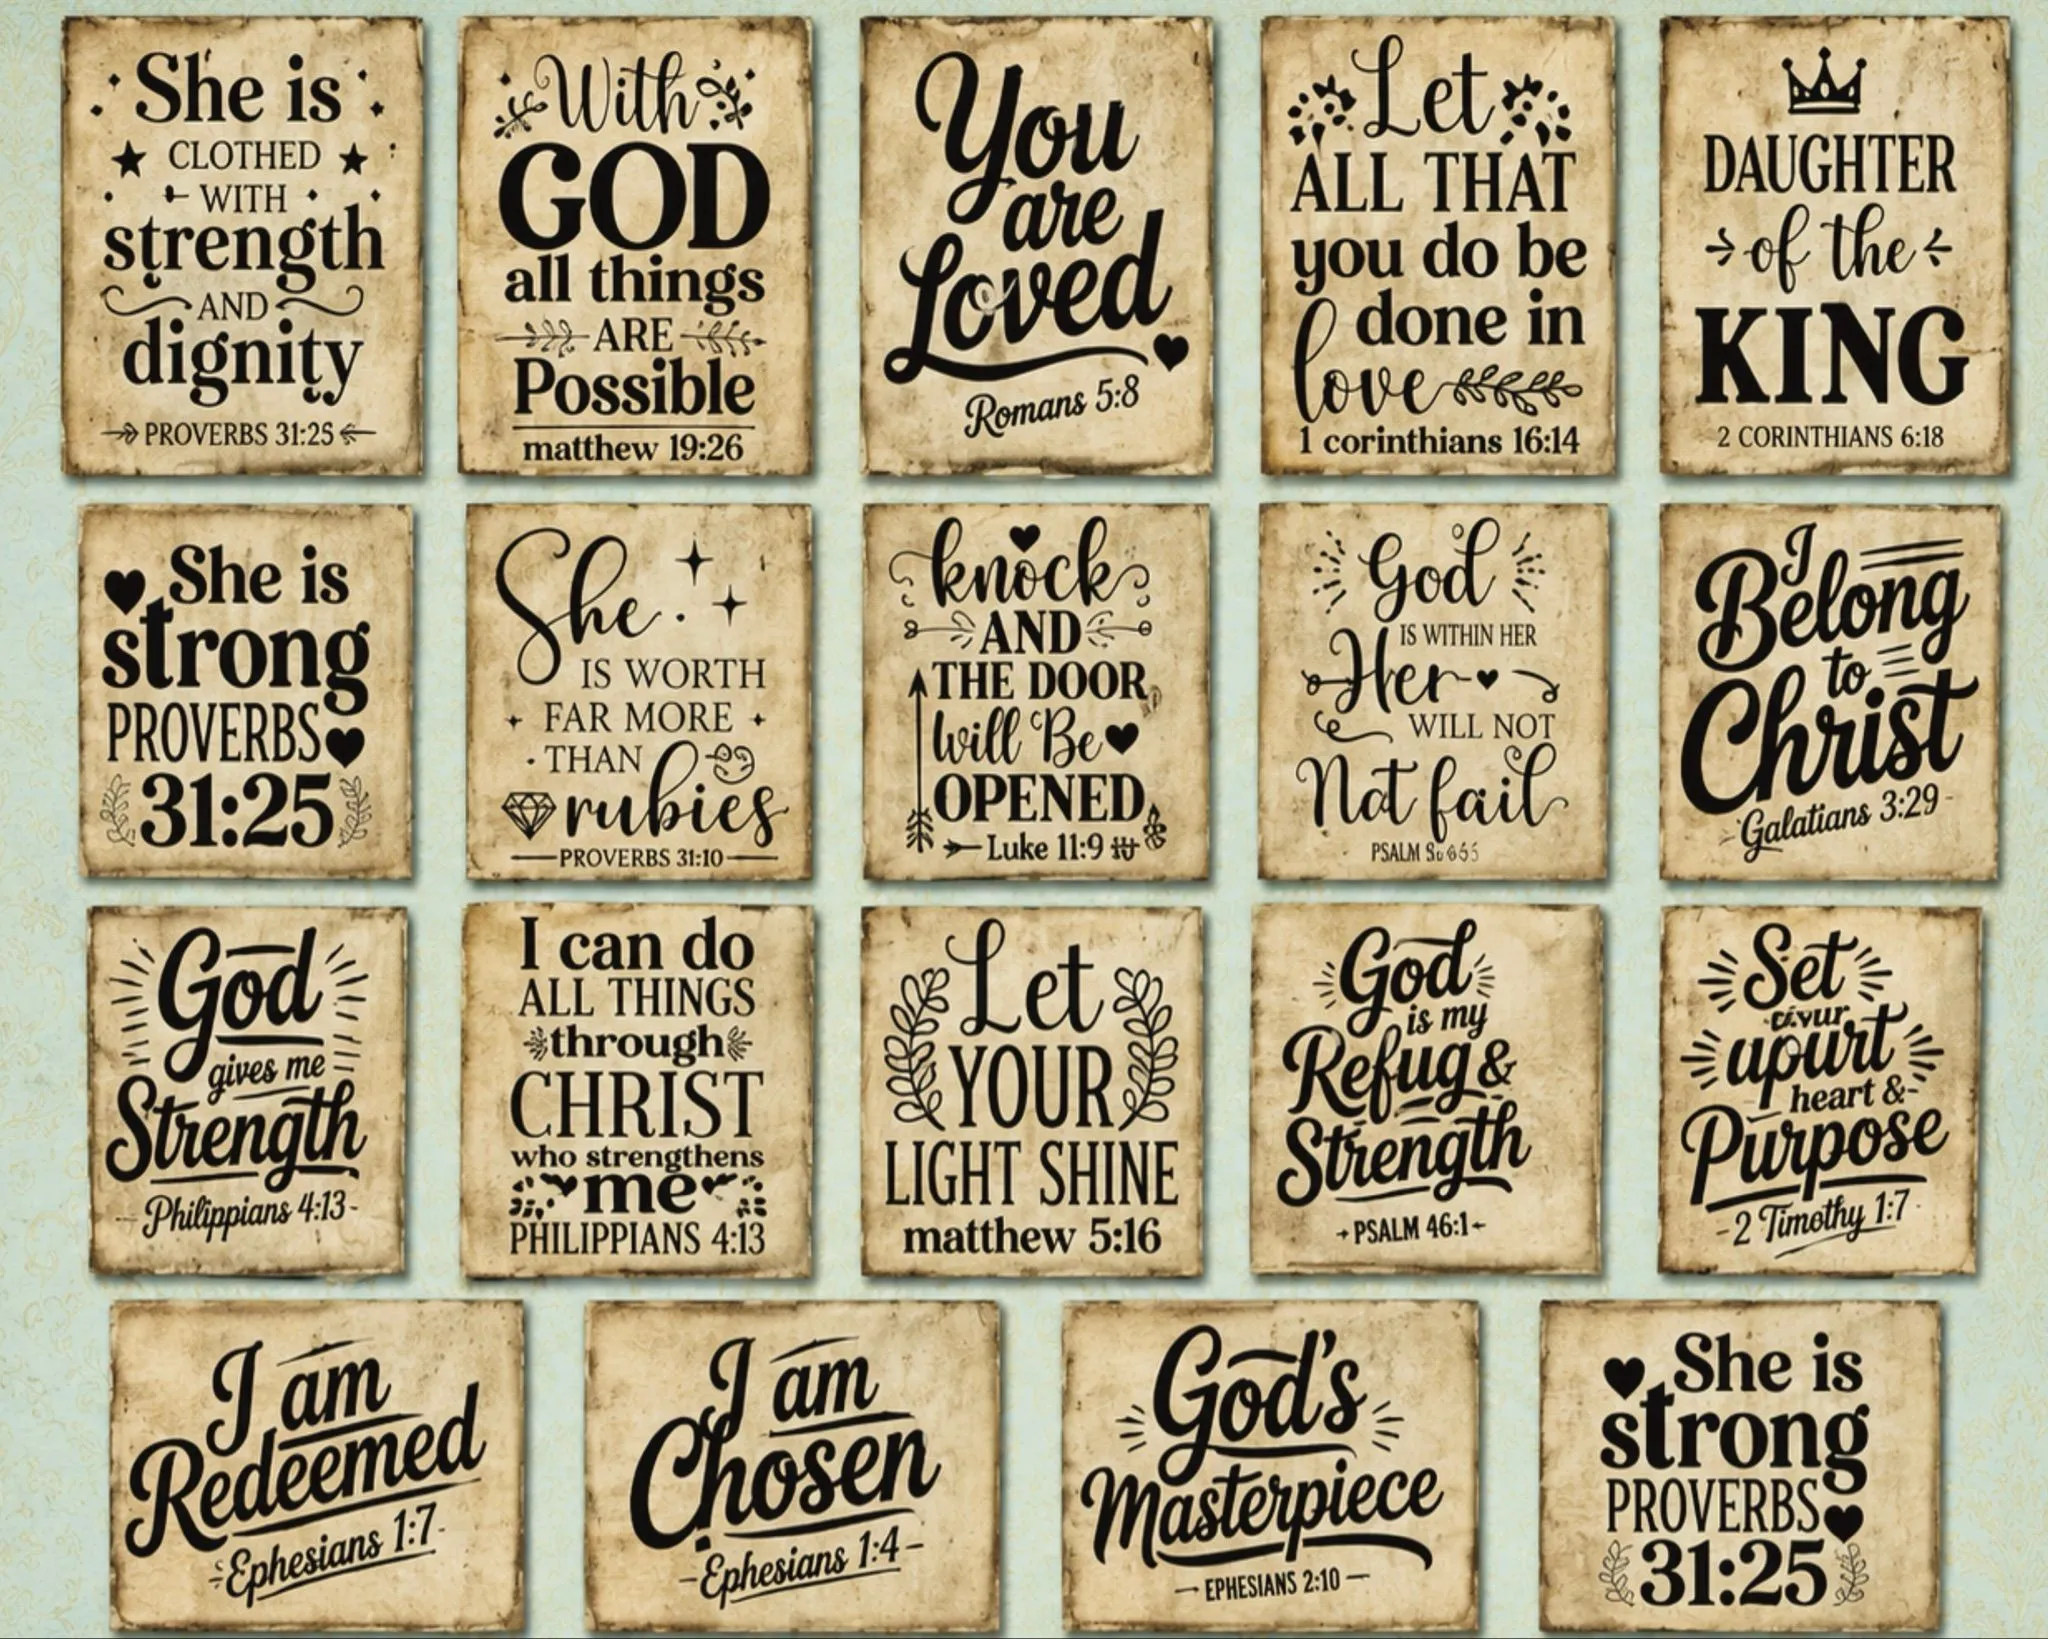 She is
CLOTHED
WITH
strength
AND
dignity
PROVERBS 31:25
With
GOD
all things
ARE
Possible
matthew 19:26
You
are
Loved
Romans 5:8
Let
ALL THAT
you do be
done in
love
1 corinthians 16:14
DAUGHTER
of the
KING
2 CORINTHIANS 6:18
She is
strong
PROVERBS
31:25
She
IS WORTH
FAR MORE
THAN
rubies
PROVERBS 31:10
knock
AND
THE DOOR
will Be
OPENED
Luke 11:9
God
IS WITHIN HER
Her
WILL NOT
Not fail
PSALM
I
Belong
to
Christ
Galatians 3:29
God
gives me
Strength
Philippians 4:13
I can do
ALL THINGS
through
CHRIST
who strengthens
me
PHILIPPIANS 4:13
Let
YOUR
LIGHT SHINE
matthew 5:16
God
is my
Refug&
Strength
PSALM 46:1
Set
apurt
heart &
Purpose
2 Timothy 1:7
I am
Redeemed
Ephesians 1:7
I am
Chosen
Ephesians 1:4
God's
Masterpiece
EPHESIANS 2:10
She is
strong
PROVERBS
31:25